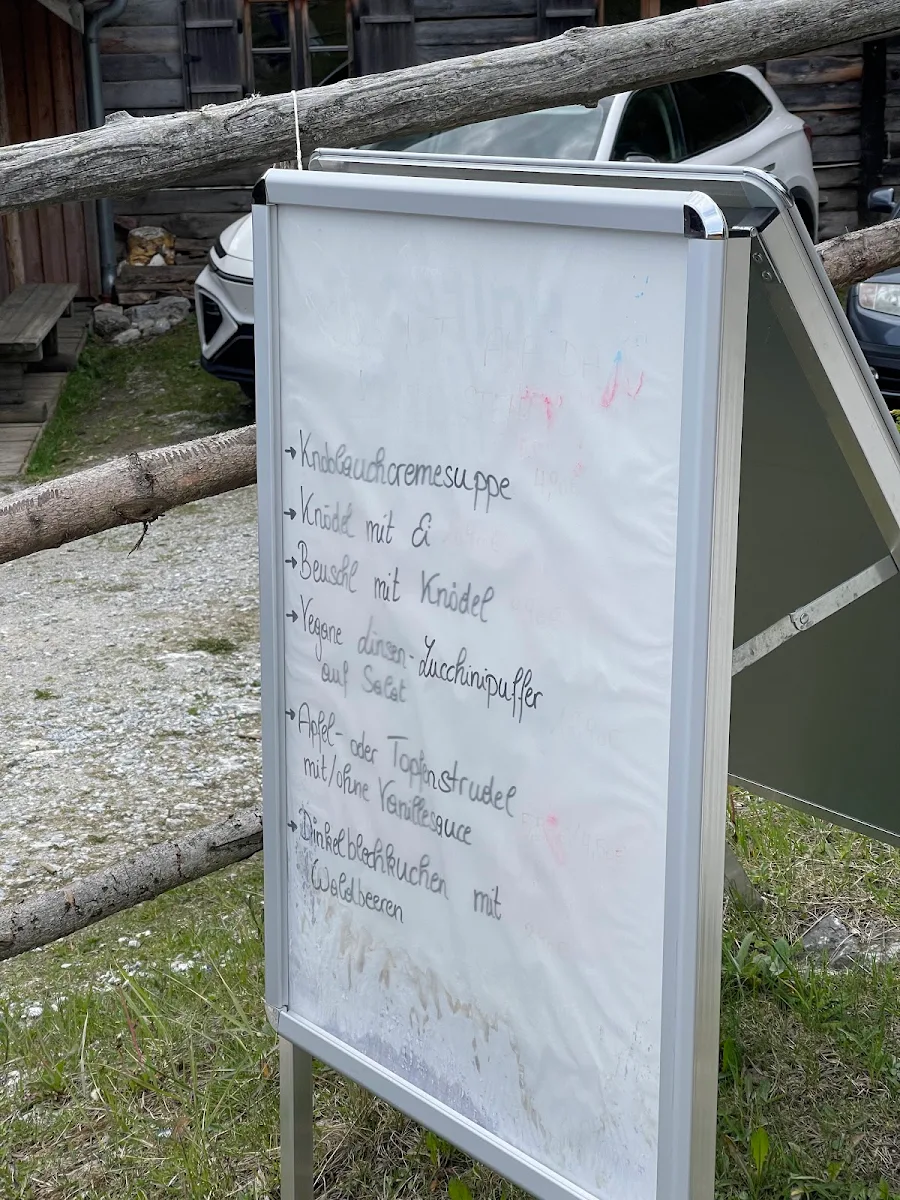 →Knoblauchcremesuppe
→Knödel mit Ei
→Beuschl mit Knödel
→Vegane Linsen-Zucchinipuffer
auf Salat
→Apfel- oder Topfenstrudel
mit/ohne Vanillesauce
→Dinkelblechkuchen mit
Waldbeeren